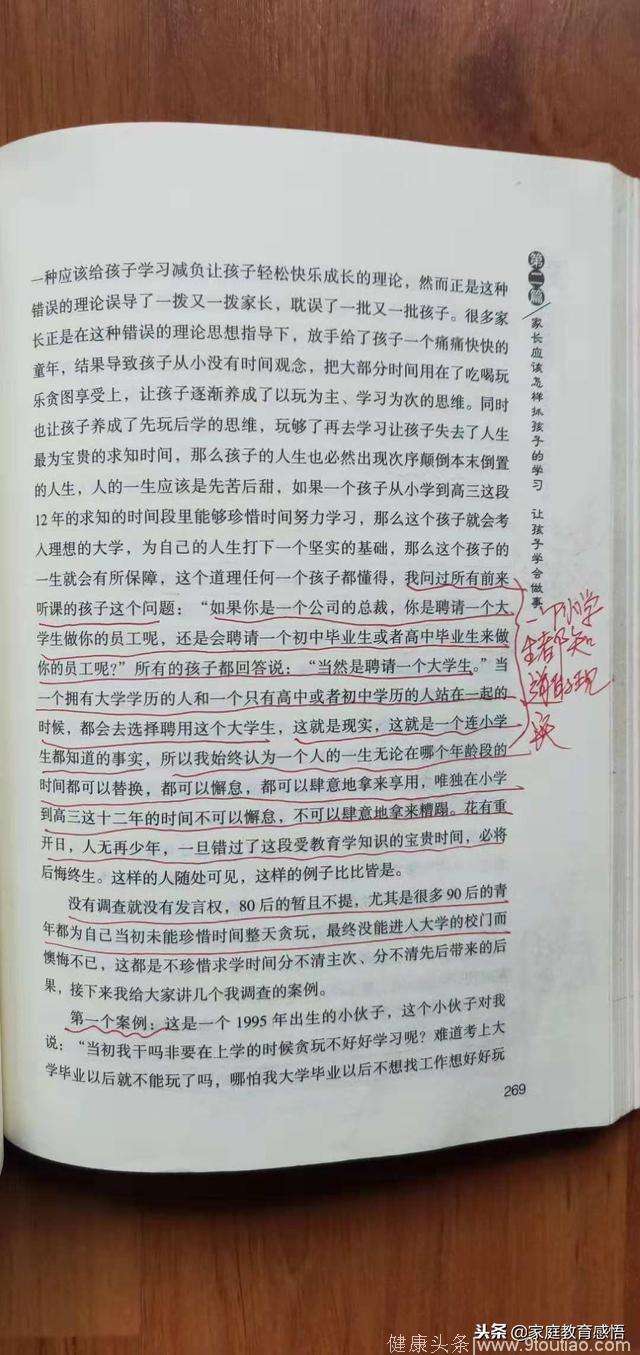 一种应该给孩子学习减负让孩子轻松快乐成长的理论，然而正是这种
错误的理论误导了一拨又一拨家长，耽误了一批又一批孩子。很多家
长正是在这种错误的理论思想指导下，放手给了孩子一个痛痛快快的
童年，结果导致孩子从小没有时间观念，把大部分时间用在了吃喝玩
乐贪图享受上，让孩子逐渐养成了以玩为主、学习为次的思维。同时
也让孩子养成了先玩后学的思维，玩够了再去学习让孩子失去了人生
最为宝贵的求知时间，那么孩子的人生也必然出现次序颠倒本末倒置
的人生，人的一生应该是先苦后甜，如果一个孩子从小学到高三这段
12年的求知的时间段里能够珍惜时间努力学习，那么这个孩子就会考
入理想的大学，为自己的人生打下一个坚实的基础，那么这个孩子的
一生就会有所保障，这个道理任何一个孩子都懂得，我问过所有前来
听课的孩子这个问题：“如果你是一个公司的总裁，你是聘请一个大
学生做你的员工呢，还是会聘请一个初中毕业生或者高中毕业生来做
你的员工呢？”所有的孩子都回答说：“当然是聘请一个大学生。”当
一个拥有大学学历的人和一个只有高中或者初中学历的人站在一起的
时候，都会去选择聘用这个大学生，这就是现实，这就是一个连小学
生都知道的事实，所以我始终认为一个人的一生无论在哪个年龄段的
时间都可以替换，都可以懈怠，都可以肆意地拿来享用，唯独在小学
到高三这十二年的时间不可以懈怠，不可以肆意地拿来糟蹋。花有重
开日，人无再少年，一旦错过了这段受教育学知识的宝贵时间，必将
后悔终生。这样的人随处可见，这样的例子比比皆是。
没有调查就没有发言权，80后的暂且不提，尤其是很多90后的青
年都为自己当初未能珍惜时间整天贪玩，最终没能进入大学的校门而
懊悔不已，这都是不珍惜求学时间分不清主次、分不清先后带来的后
果，接下来我给大家讲几个我调查的案例。
第一个案例：这是一个1995年出生的小伙子，这个小伙子对我
说：“当初我干吗非要在上学的时候贪玩不好好学习呢？难道考上大
学毕业以后就不能玩了吗，哪怕我大学毕业以后不想找工作想好好玩
269
第二篇
家长应该怎样抓孩子的学习 让孩子学会做事
一个小学
生都知
现
头条 @家庭教育感悟
健康头条 www.9toutiao.com